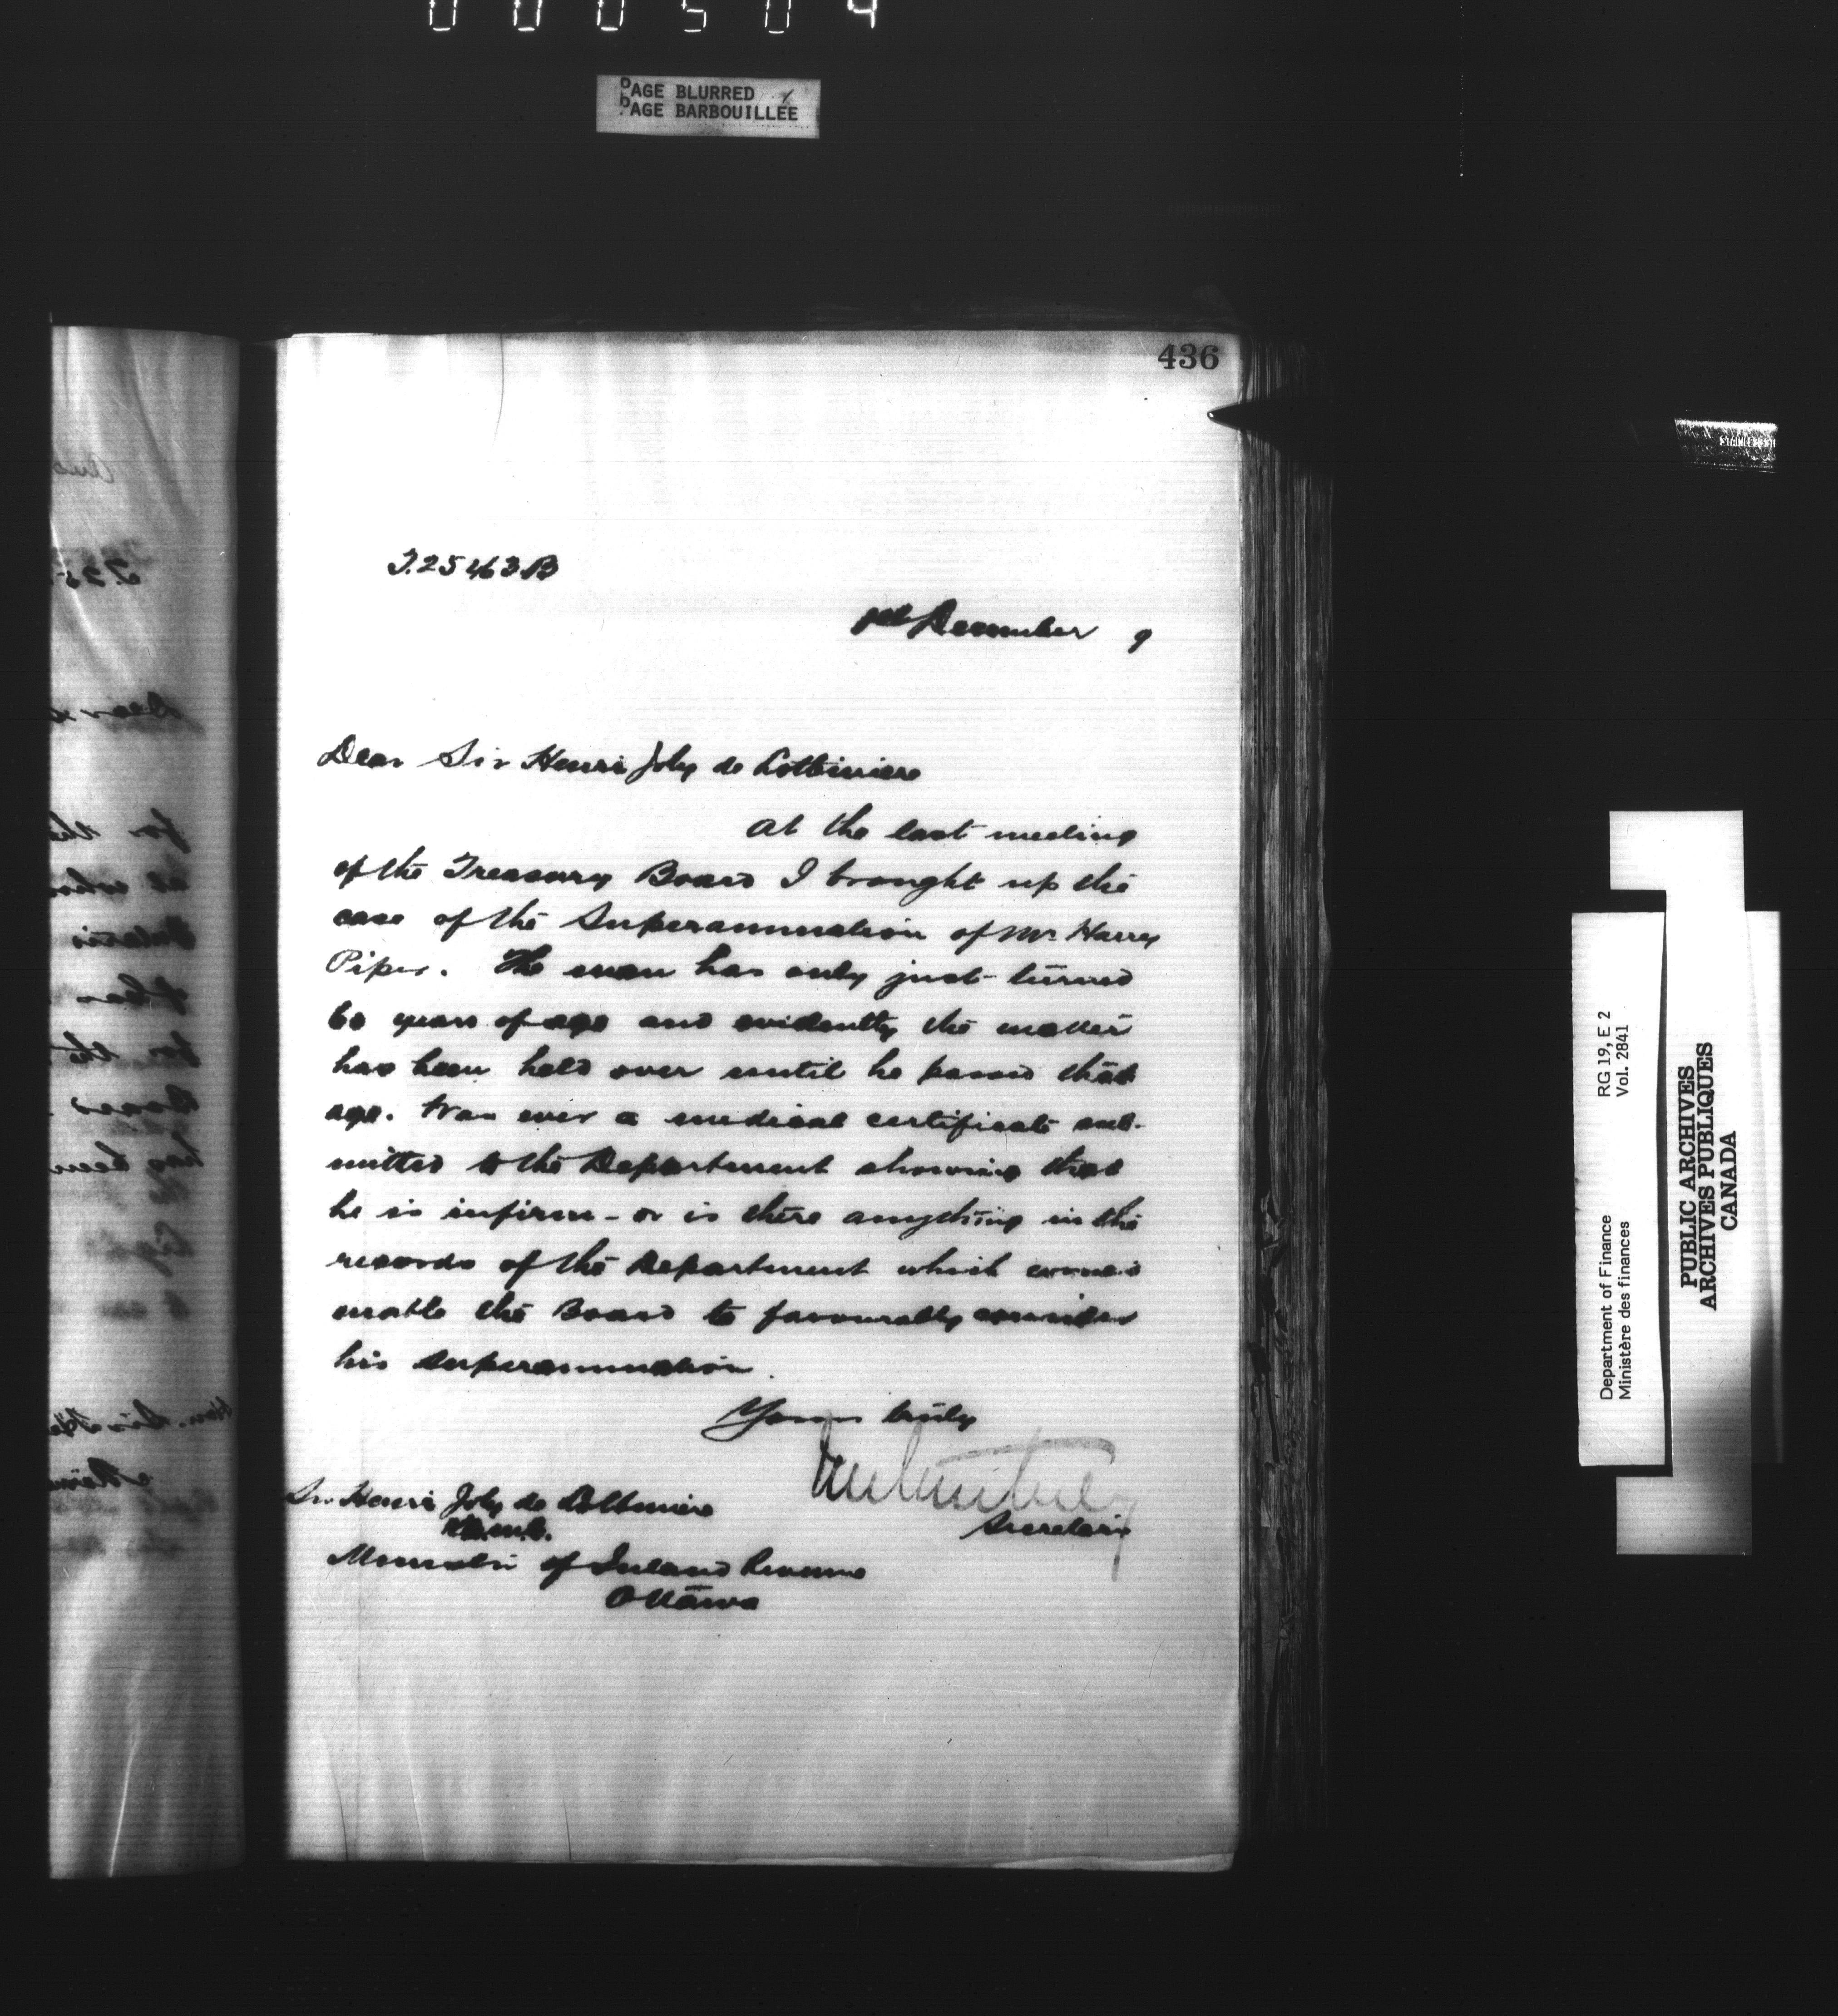 000504
PAGE BLURRED
PAGE BARBOUILLÉE
436
T.25463B
1st December 9
Dear Sir Henri Joly de Lotbiniere
At the last meeting
of the Treasury Board I brought up the
case of the Superannuation of Mr Harry
Piper. The man has only just turned
60 years of age and evidently the matter
has been held over until he passed that
age. Was ever a medical certificate sub-
mitted to the Department showing that
he is infirm - or is there anything in the
records of the Department which would
enable the Board to favourably consider
his superannuation.
Yours truly
Secretary
Sir Henri Joly de Lotbiniere
K.C.M.G.
Minister of Inland Revenue
Ottawa
Department of Finance
Ministère des finances
RG 19, E 2
Vol. 2841
PUBLIC ARCHIVES
ARCHIVES PUBLIQUES
CANADA